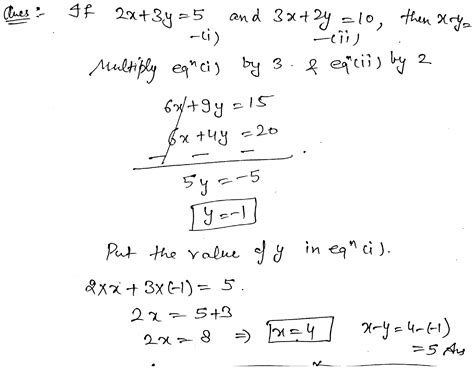 Ques :- If 2x+3y=5 and 3x+2y=10, then x-y=
-(i) -(ii)
Multiply eqⁿ(i) by 3 & eqⁿ(ii) by 2
6x+9y=15
6x+4y=20
- - -
5y=-5
y=-1
Put the value of y in eqⁿ(i).
2×x+3×(-1)=5.
2x=5+3
2x=8 ⇒ x=4 x-y=4-(-1)
=5 Ans